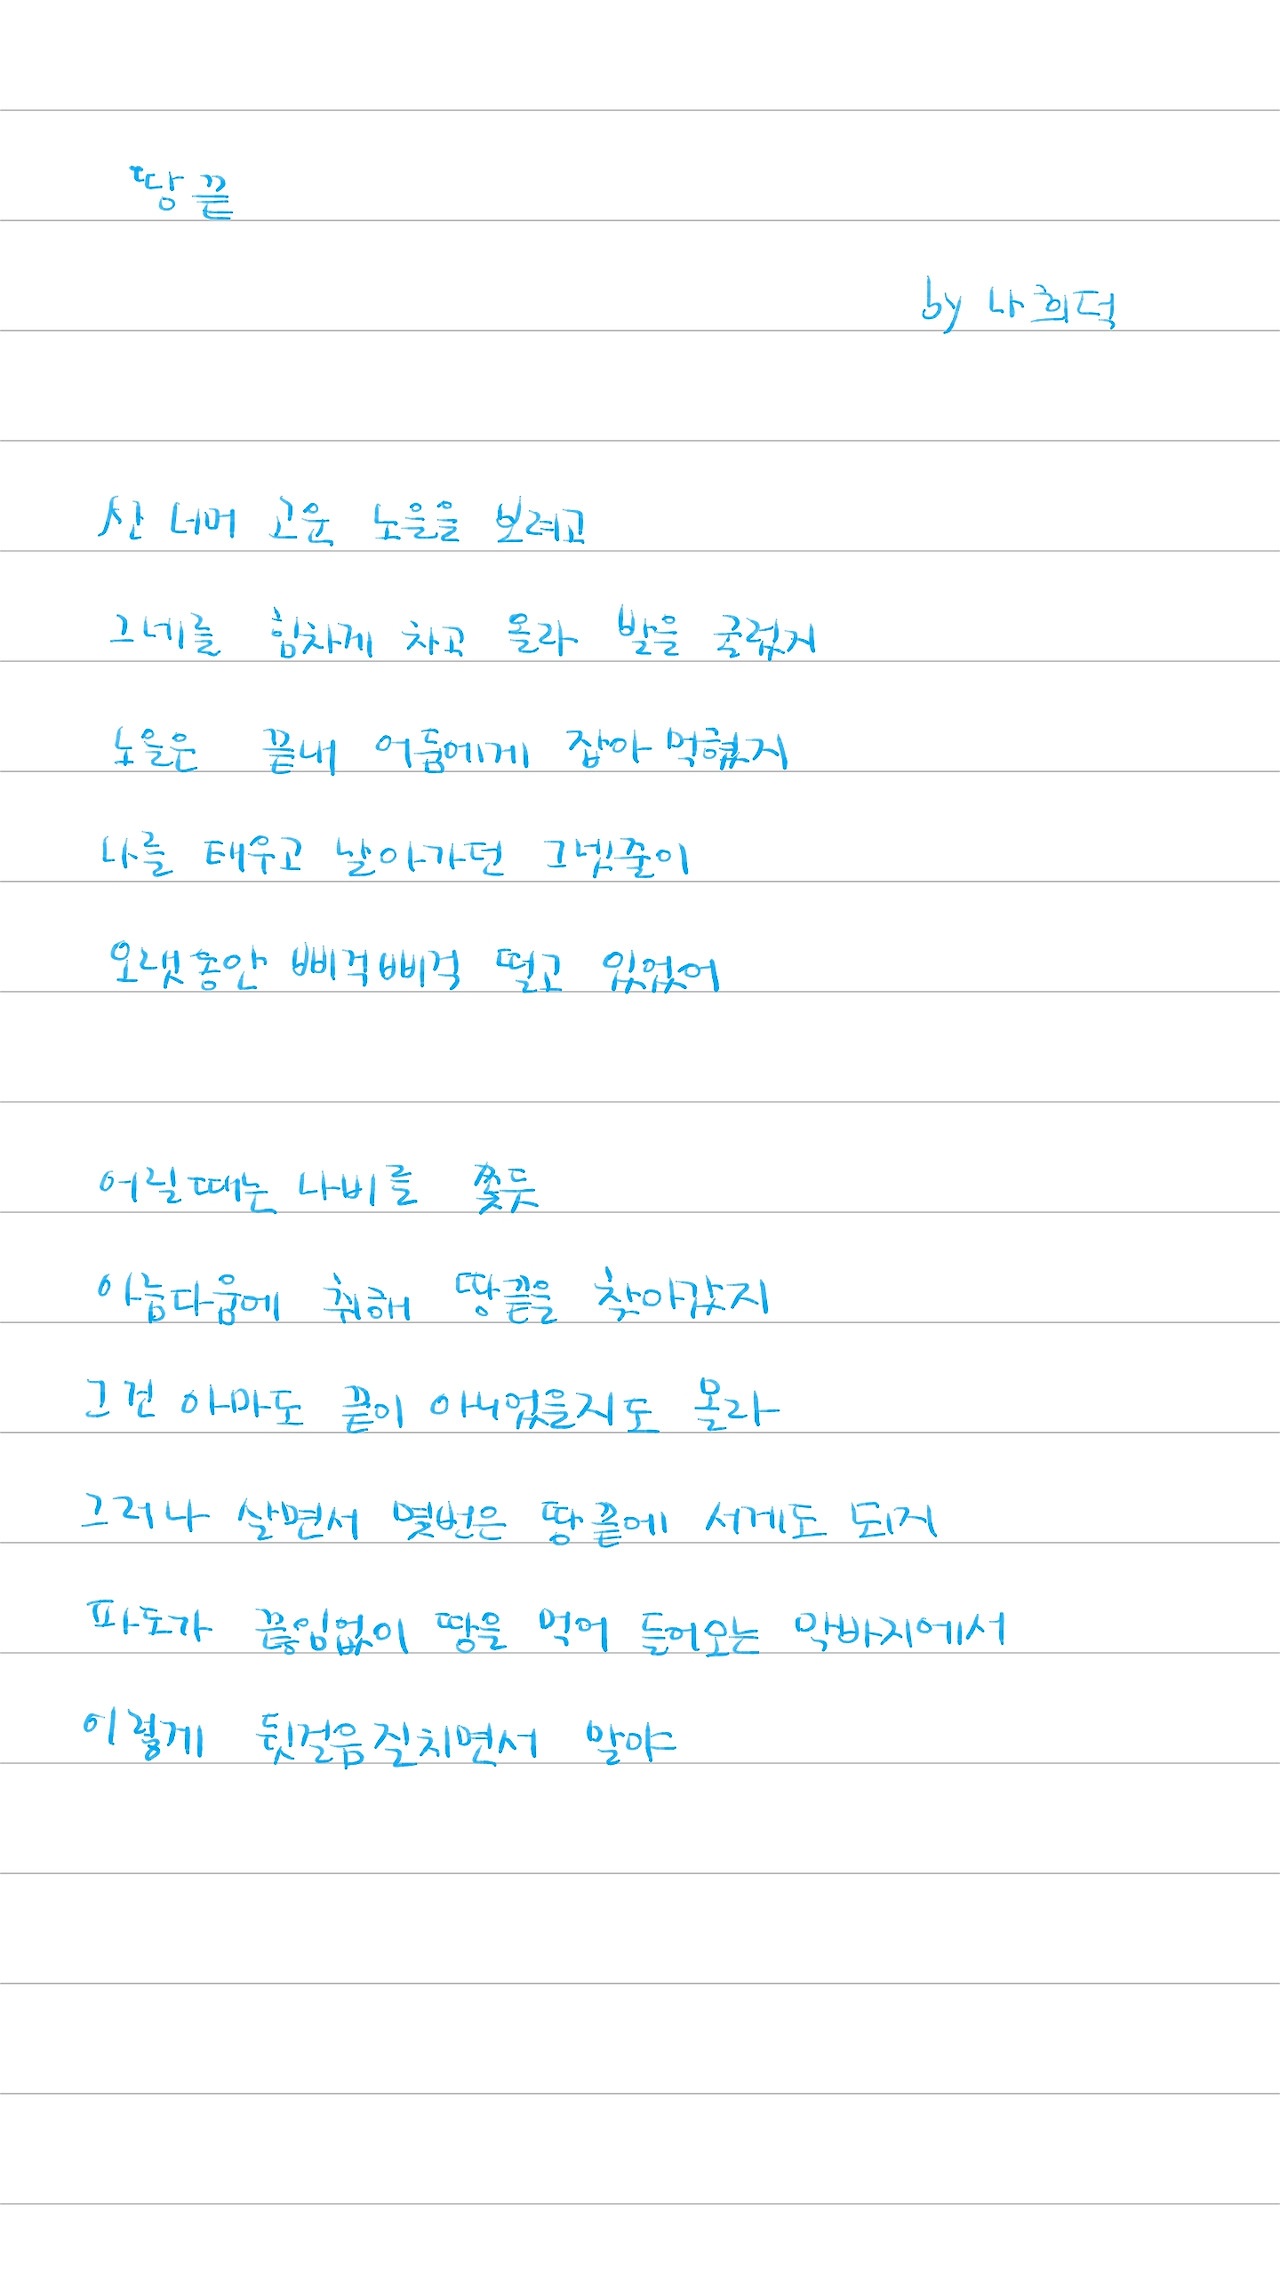 땅끝
by 나희덕
산 너머 고운 노을을 보려고
그네를 힘차게 차고 올라 발을 굴렀지
노을은 끝내 어둠에게 잡아먹혔지
나를 태우고 날아가던 그넷줄이
오랫동안 삐걱삐걱 떨고 있었어
어릴때는 나비를 쫓듯
아름다움에 취해 땅끝을 찾아갔지
그건 아마도 끝이 아니었을지도 몰라
그러나 살면서 몇번은 땅끝에 서게도 되지
파도가 끊임없이 땅을 먹어 들어오는 막바지에서
이렇게 뒷걸음질치면서 말야